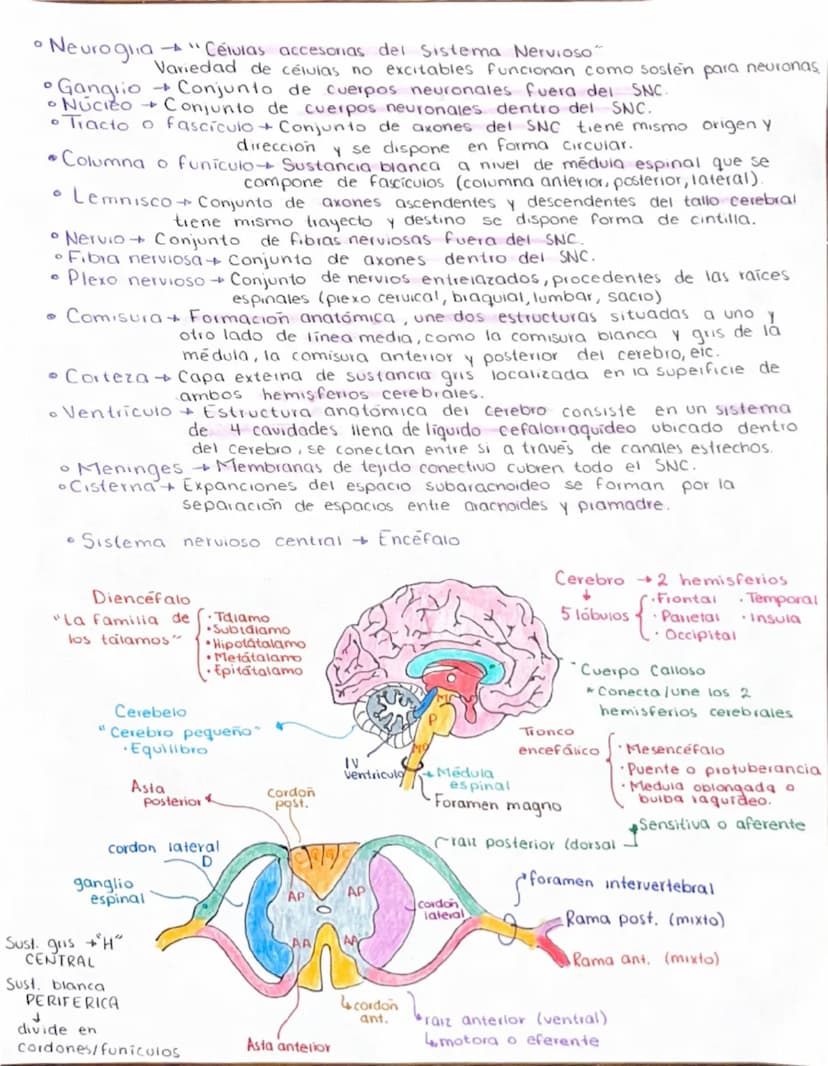 • Neuroglia → "Células accesorias del Sistema Nervioso"
Variedad de células no excitables funcionan como sostén para neuronas.
• Ganglio → Conjunto de cuerpos neuronales fuera del SNC.
• Núcleo → Conjunto de cuerpos neuronales dentro del SNC.
• Tracto o fascículo → Conjunto de axones del SNC tiene mismo origen y
dirección y se dispone en forma circular.
• Columna o funículo → Sustancia blanca a nivel de médula espinal que se
compone de fascículos (columna anterior, posterior, lateral).
• Lemnisco → Conjunto de axones ascendentes y descendentes del tallo cerebral
tiene mismo trayecto y destino se dispone forma de cintilla.
• Nervio → Conjunto de fibras nerviosas fuera del SNC.
• Fibra nerviosa → Conjunto de axones dentro del SNC.
• Plexo nervioso → Conjunto de nervios entrelazados, procedentes de las raíces
espinales (plexo cervical, braquial, lumbar, sacro)
• Comisura → Formación anatómica, une dos estructuras situadas a uno y
otro lado de línea media, como la comisura blanca y gris de la
médula, la comisura anterior y posterior del cerebro, etc.
• Corteza → Capa externa de sustancia gris localizada en la superficie de
ambos hemisferios cerebrales.
• Ventrículo → Estructura anatómica del cerebro consiste en un sistema
de 4 cavidades llena de líquido cefalorraquídeo ubicado dentro
del cerebro, se conectan entre si a través de canales estrechos.
• Meninges → Membranas de tejido conectivo cubren todo el SNC.
• Cisterna → Expanciones del espacio subaracnoideo se forman por la
separación de espacios entre aracnoides y piamadre.
• Sistema nervioso central → Encéfalo
Diencéfalo
"La familia de
los tálamos"
• Tálamo
• Subtálamo
• Hipotálamo
• Metátalamo
• Epitátalamo
Cerebro → 2 hemisferios
5 lóbulos
• Frontal • Temporal
• Parietal • Insula
• Occipital
Cuerpo Calloso
* Conecta/une los 2
hemisferios cerebrales
Cerebelo
"Cerebro pequeño"
• Equilibro
M
P
MO
IV
Ventriculo
Médula
espinal
Foramen magno
Tronco
encefálico
• Mesencéfalo
• Puente o protuberancia
• Medula oblongada o
bulba raquídeo.
Asta
posterior
cordon
post.
Sensitiva o aferente
raiz posterior (dorsal
cordon lateral
D
ganglio
espinal
AP
AP
AA
AA
cordón
lateral
foramen intervertebral
Rama post. (mixto)
Rama ant. (mixto)
Sust. gris → "H"
CENTRAL
Sust. blanca
PERIFERICA
↓
divide en
cordones/funículos
Asta anterior
cordon
ant.
raiz anterior (ventral)
motora o eferente